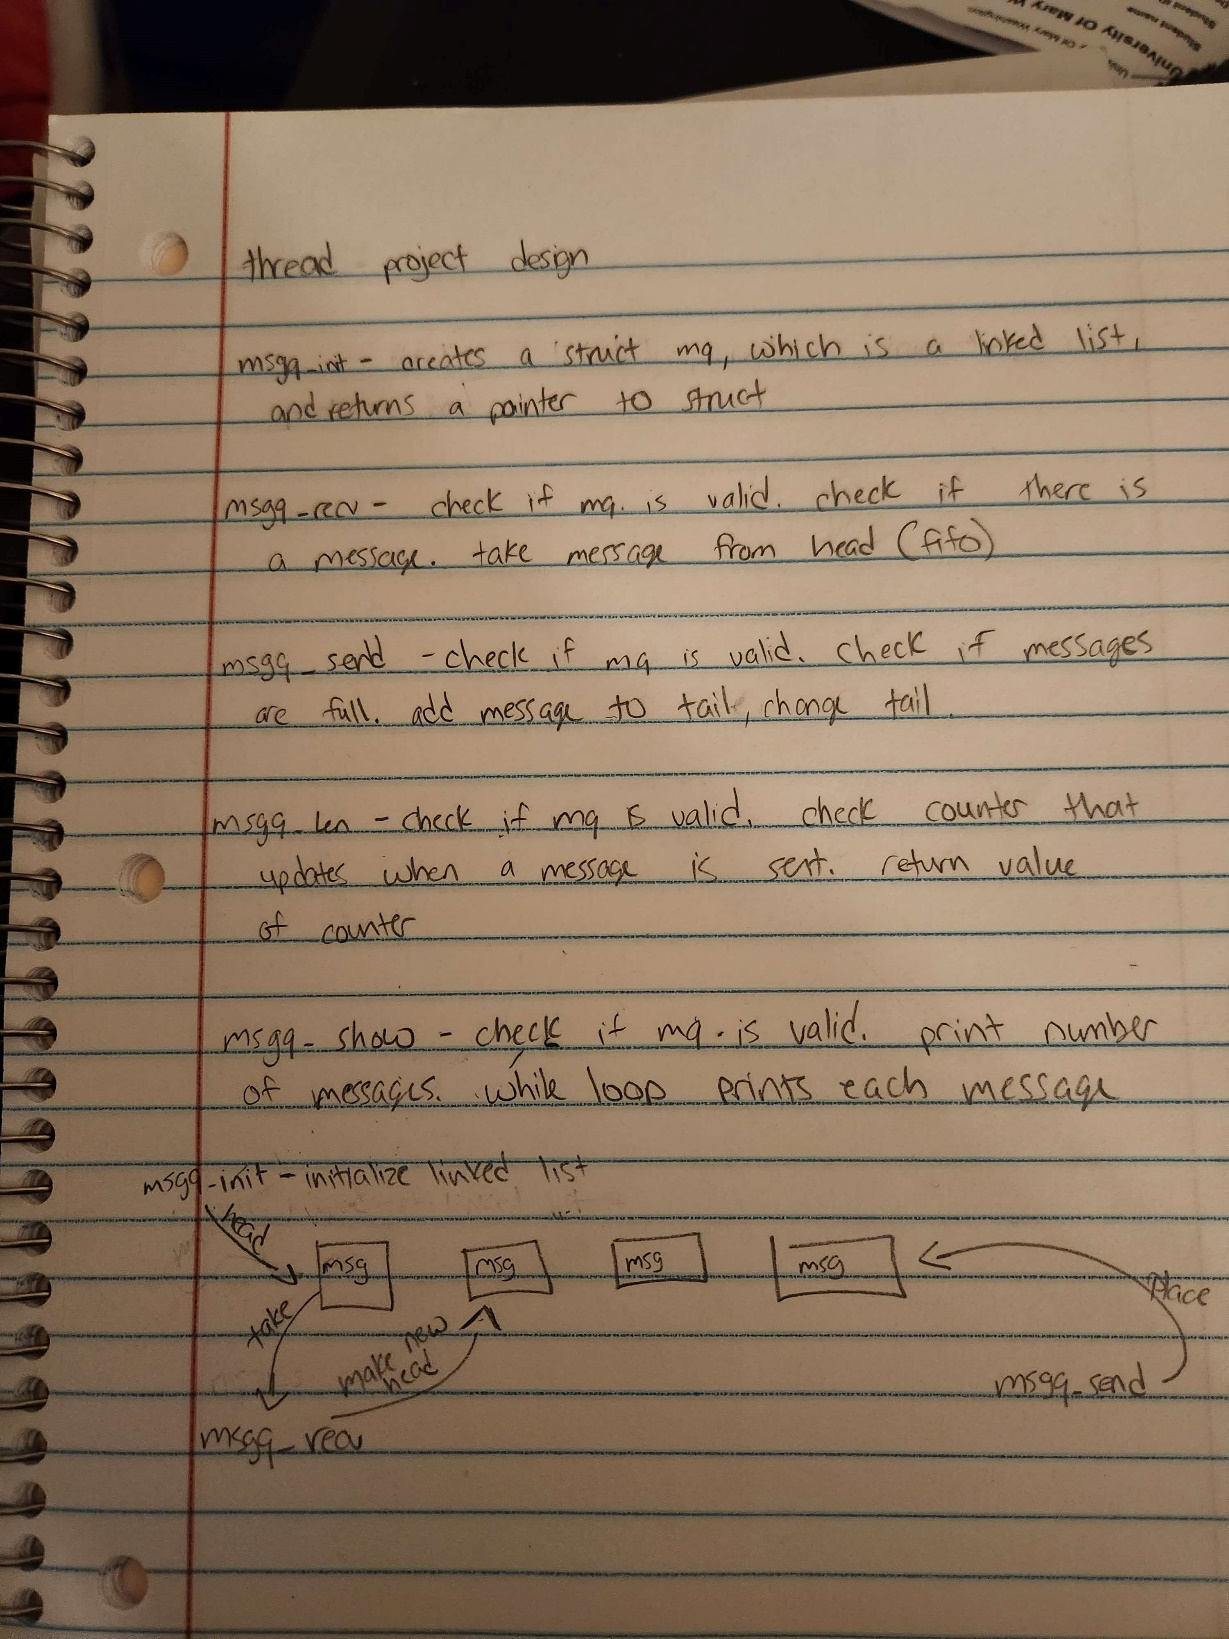 University Of Mary W
Of Mary Washington
Student name
thread project design
msgq_init - creates a struct mq, which is a linked list,
and returns a pointer to struct
msgq_recv - check if mq. is valid. check if there is
a message. take message from head (fifo)
msgq_send - check if mq is valid. check if messages
are full. add message to tail, change tail.
msgq_len - check if mq is valid. check counter that
updates when a message is sent. return value
of counter
msgq_show - check if mq. is valid. print number
of messages. while loop prints each message
msgq_init - initialize linked list
head
msg msg msg msg
Place
take
make new
head
msgq_send
msgq_recv